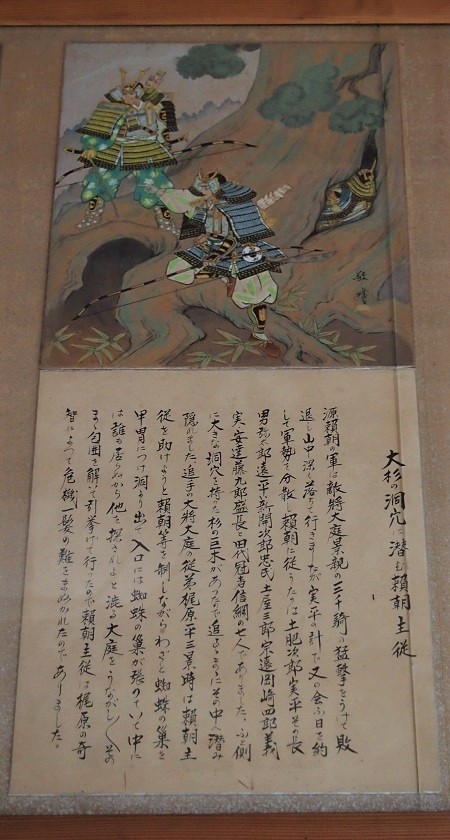 大杉の洞穴に潜む頼朝主従
源頼朝の軍は敵将大庭景親の三千騎の猛撃をうけて敗
退し山中深く落ちて行きましたが実平の計で又の会ふ日を約
して軍勢を分散し頼朝に従うたのは土肥次郎実平その長
男弥太郎遠平新開次郎忠氏土屋三郎宗遠岡崎四郎義
実安達藤九郎盛長田代冠者信綱の七人でありました、ふと側
に大きな洞穴を持った杉の三木があったので追はるゝまゝにその中へ潜み
隠れました追手の大将大庭の従弟梶原平三景時は頼朝主
従を助けようと頼朝等を制しながらわざと蜘蛛の巣を
甲冑につけ洞より出て入口には蜘蛛の巣が張っていて中に
は誰も居らぬから他を探されよと渋る大庭をうながし〱その
まゝ囲を解いて引挙げて行ったので頼朝主従は梶原の奇
智によって危機一髪の難をまぬかれたのでありました。